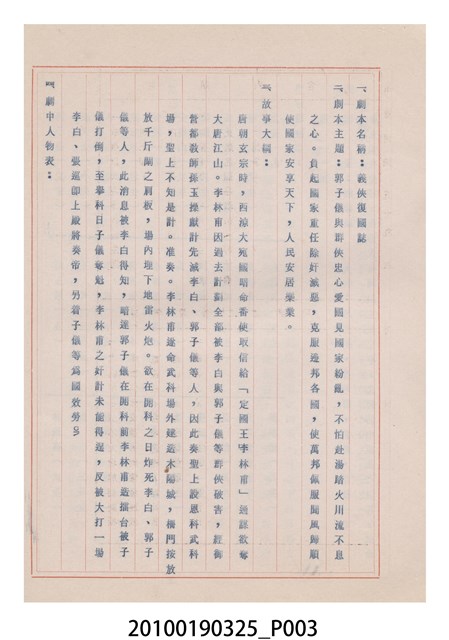 一、劇本名稱：義俠復國誌
二、劇本主題：郭子儀與群俠忠心愛國見國家紛亂，不怕赴湯踏火川流不息
之心。負起國家重任除奸滅惡，克服邊邦各國，使萬邦佩服聞風歸順
使國家安享天下，人民安居樂業。
三、故事大綱：
唐朝玄宗時，西涼大宛國暗命番使取信給「定國王李林甫」邊謀欲奪
大唐江山。李林甫因過去計劃全部被李白與郭子儀等群俠破害，經御
營都教師孫玉操獻計先滅李白、郭子儀等人，因此奏聖上設恩科武科
場，聖上不知是計。准奏。李林甫遂命武科場外建造木陽城，橋門按放
放千斤閘之肩板，場內埋下地雷火炮。欲在開科之日炸死李白、郭子
儀等人，此消息被李白得知，暗達郭子儀在開科前李林甫造擂台被子
儀打倒，至擧科日子儀奪魁，李林甫之奸計未能得逞，反被大打一場
李白、張遥即上殿將奏帝，另着子儀等為國效勞。
四、劇中人物表：
20100190325_P003